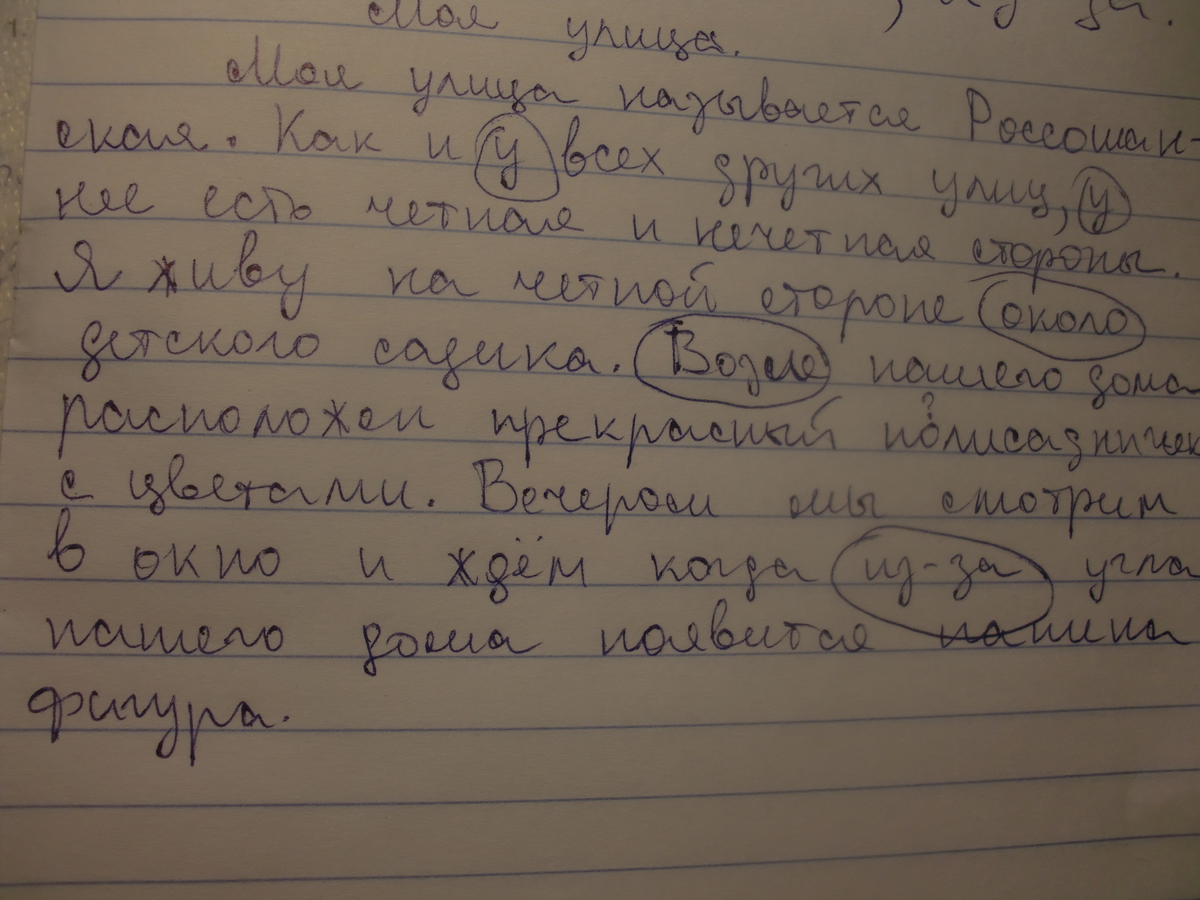 Моя улица.
Моя улица называется Россошан-
ская. Как и у всех других улиц, у
нее есть четная и нечетная стороны.
Я живу на четной стороне около
детского садика. Возле нашего дома
расположен прекрасный полисадничек
с цветами. Вечером мы смотрим
в окно и ждём когда из-за угла
нашего дома появится мамина
фигура.